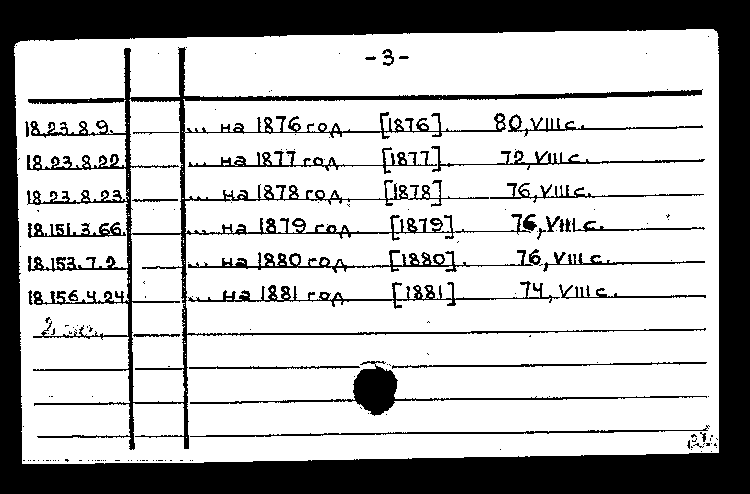 -3-
18.23.8.9. ... на 1876 год. [1876]. 80, VIII с.
18.23.8.22. ... на 1877 год. [1877]. 72, VIII с.
18.23.8.23. ... на 1878 год. [1878]. 76, VIII с.
18.151.3.66. ... на 1879 год. [1879]. 76, VIII с.
18.153.7.2. ... на 1880 год. [1880]. 76, VIII с.
18.156.4.24. ... на 1881 год. [1881]. 74, VIII с.
2 экз.